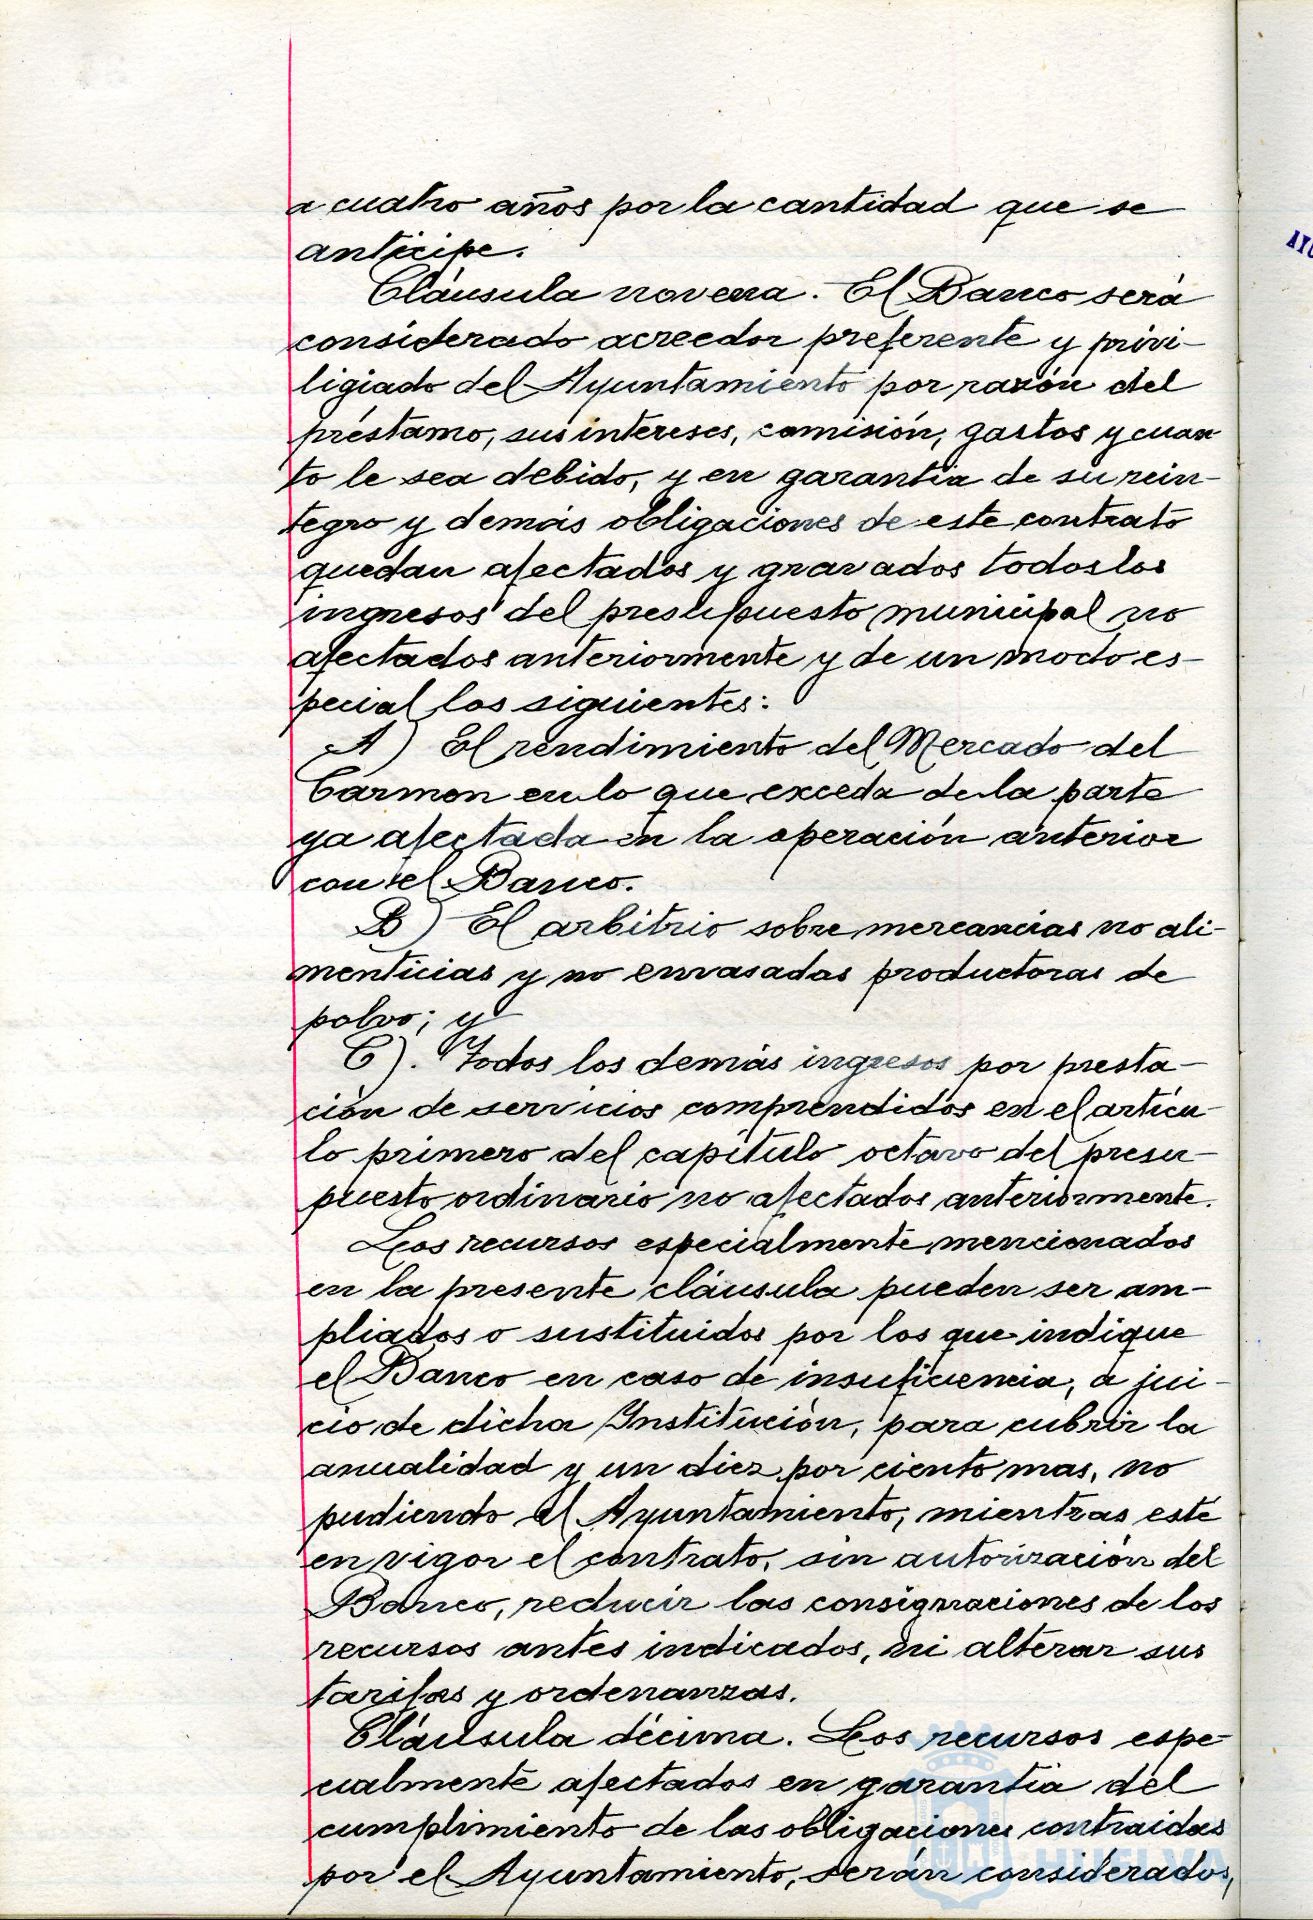 a cuatro años por la cantidad que se
anticipe.
Cláusula novena. El Banco será
considerado acreedor preferente y privi-
ligiado del Ayuntamiento por razón del
préstamo, sus intereses, comisión, gastos y cuan
to le sea debido, y en garantía de su rein-
tegro y demás obligaciones de este contrato
quedan afectados y gravados todos los
ingresos del presupuesto municipal no
afectados anteriormente y de un modo es-
pecial los siguientes:
A) El rendimiento del Mercado del
Carmen en lo que exceda de la parte
ya afectada en la operación anterior
con el Banco.
B) El arbitrio sobre mercancias no ali-
menticias y no envasadas productoras de
polvo; y
C). Todos los demás ingresos por presta-
ción de servicios comprendidos en el artícu-
lo primero del capítulo octavo del presu-
puesto ordinario no afectados anteriormente.
Los recursos especialmente mencionados
en la presente cláusula pueden ser am-
pliados o sustituidos por los que indique
el Banco en caso de insuficiencia, a jui-
cio de dicha Institución, para cubrir la
anualidad y un diez por ciento mas, no
pudiendo el Ayuntamiento, mientras esté
en vigor el contrato, sin autorización del
Banco, reducir las consignaciones de los
recursos antes indicados, ni alterar sus
tarifas y ordenanzas.
Cláusula décima. Los recursos espe-
cialmente afectados en garantía del
cumplimiento de las obligaciones contraidas
por el Ayuntamiento, serán considerados,
HUELVA